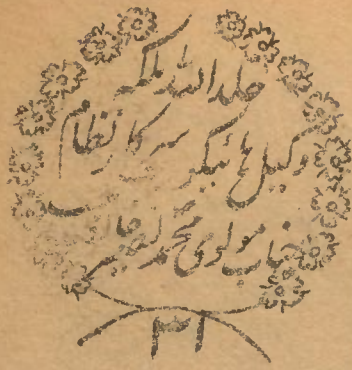 خلد اللہ ملکہ
وکیل ہائیکورٹ سرکار نظام
جناب مولوی محمد
۳۱